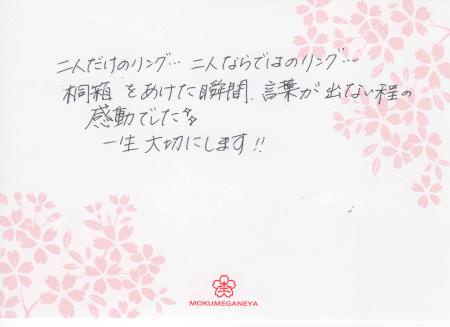 二人だけのリング… 二人ならではのリング…
桐箱をあけた瞬間、言葉が出ない程の
感動でした
一生大切にします!!
MOKUMEGANEYA